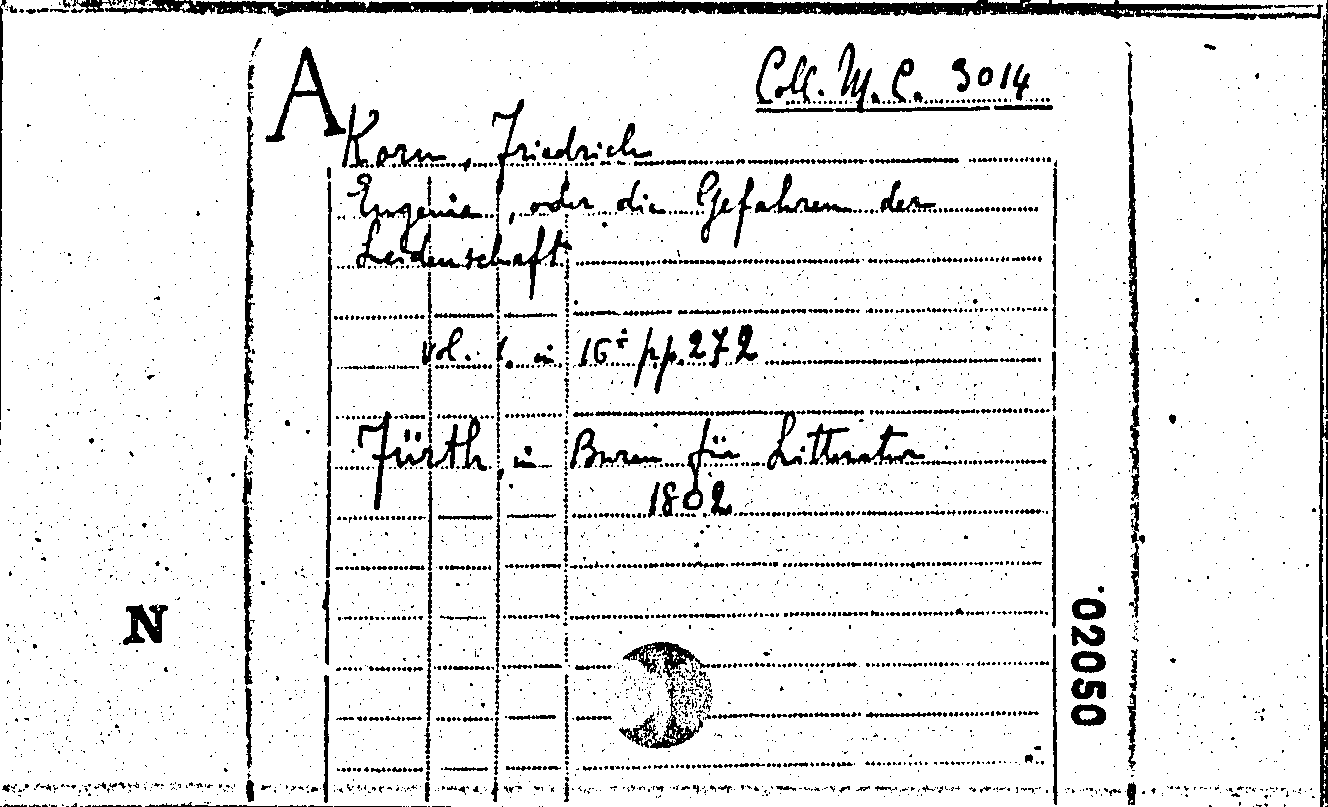 A
Coll. M. C. 3014
Korn, Friedrich
Eugenia, oder die Gefahren der
Leidenschaft
vol. 1. in 16° pp. 272
Fürth, in Bureau für Litteratur
1802
N
02050